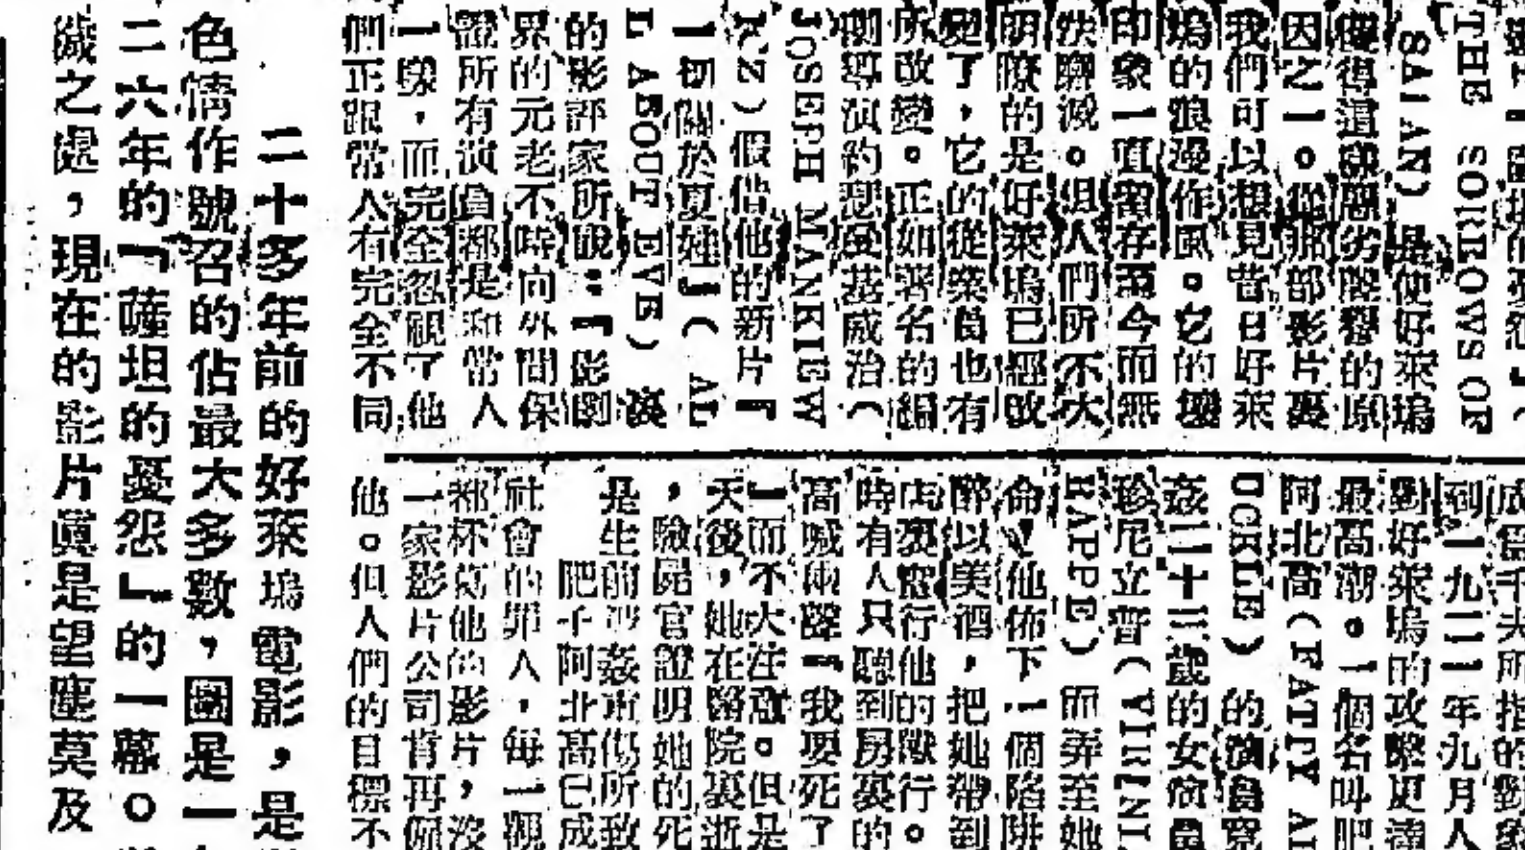 THE SORROWS OF
SATAN）是使好萊塢
變得這樣惡劣聲譽的原
因之一。從那部影片裏
我們可以想見昔日好萊
塢的浪漫作風。它的壞
印象一直留存至今而無
法磨滅。但人們所不大
明瞭的是好萊塢已經改
變了，它的從業員也有
所改變。正如著名的編
劇導演約瑟曼基威治（
JOSEPH MANKIEW
KZ）假借他的新片『
一切關於夏娃』（AL
L ABOUT EVE）裏
的影評家所說：『影劇
界的元老不時向外間保
證所有演員都是和常人
一樣，而完全忽視了他
們正跟常人有完全不同
到一九二一年九月人
對好萊塢的攻擊更達
最高潮。一個名叫肥
阿北高（FATTY AR
UCKLE）的演員
姦二十三歲的女演員
珍尼立普（VIRGINI
RAPPE）而弄至她
命。他佈下一個陷阱
醉以美酒，把她帶到
店裏實行他的獸行。
時有人只聽到房裏的
高喊幾聲『我要死了
』而不大注意。但是
天後，她在醫院裏逝
，驗屍官證明她的死
是生前被姦重傷所致
肥子阿北高已成
社會的罪人，每一觀
都杯葛他的影片，沒
一家影片公司肯再僱
他。但人們的目標不
二十多年前的好萊塢電影，是
色情作號召的佔最大多數，圖是一
二六年的『薩坦的憂怨』的一幕。
穢之處，現在的影片眞是望塵莫及